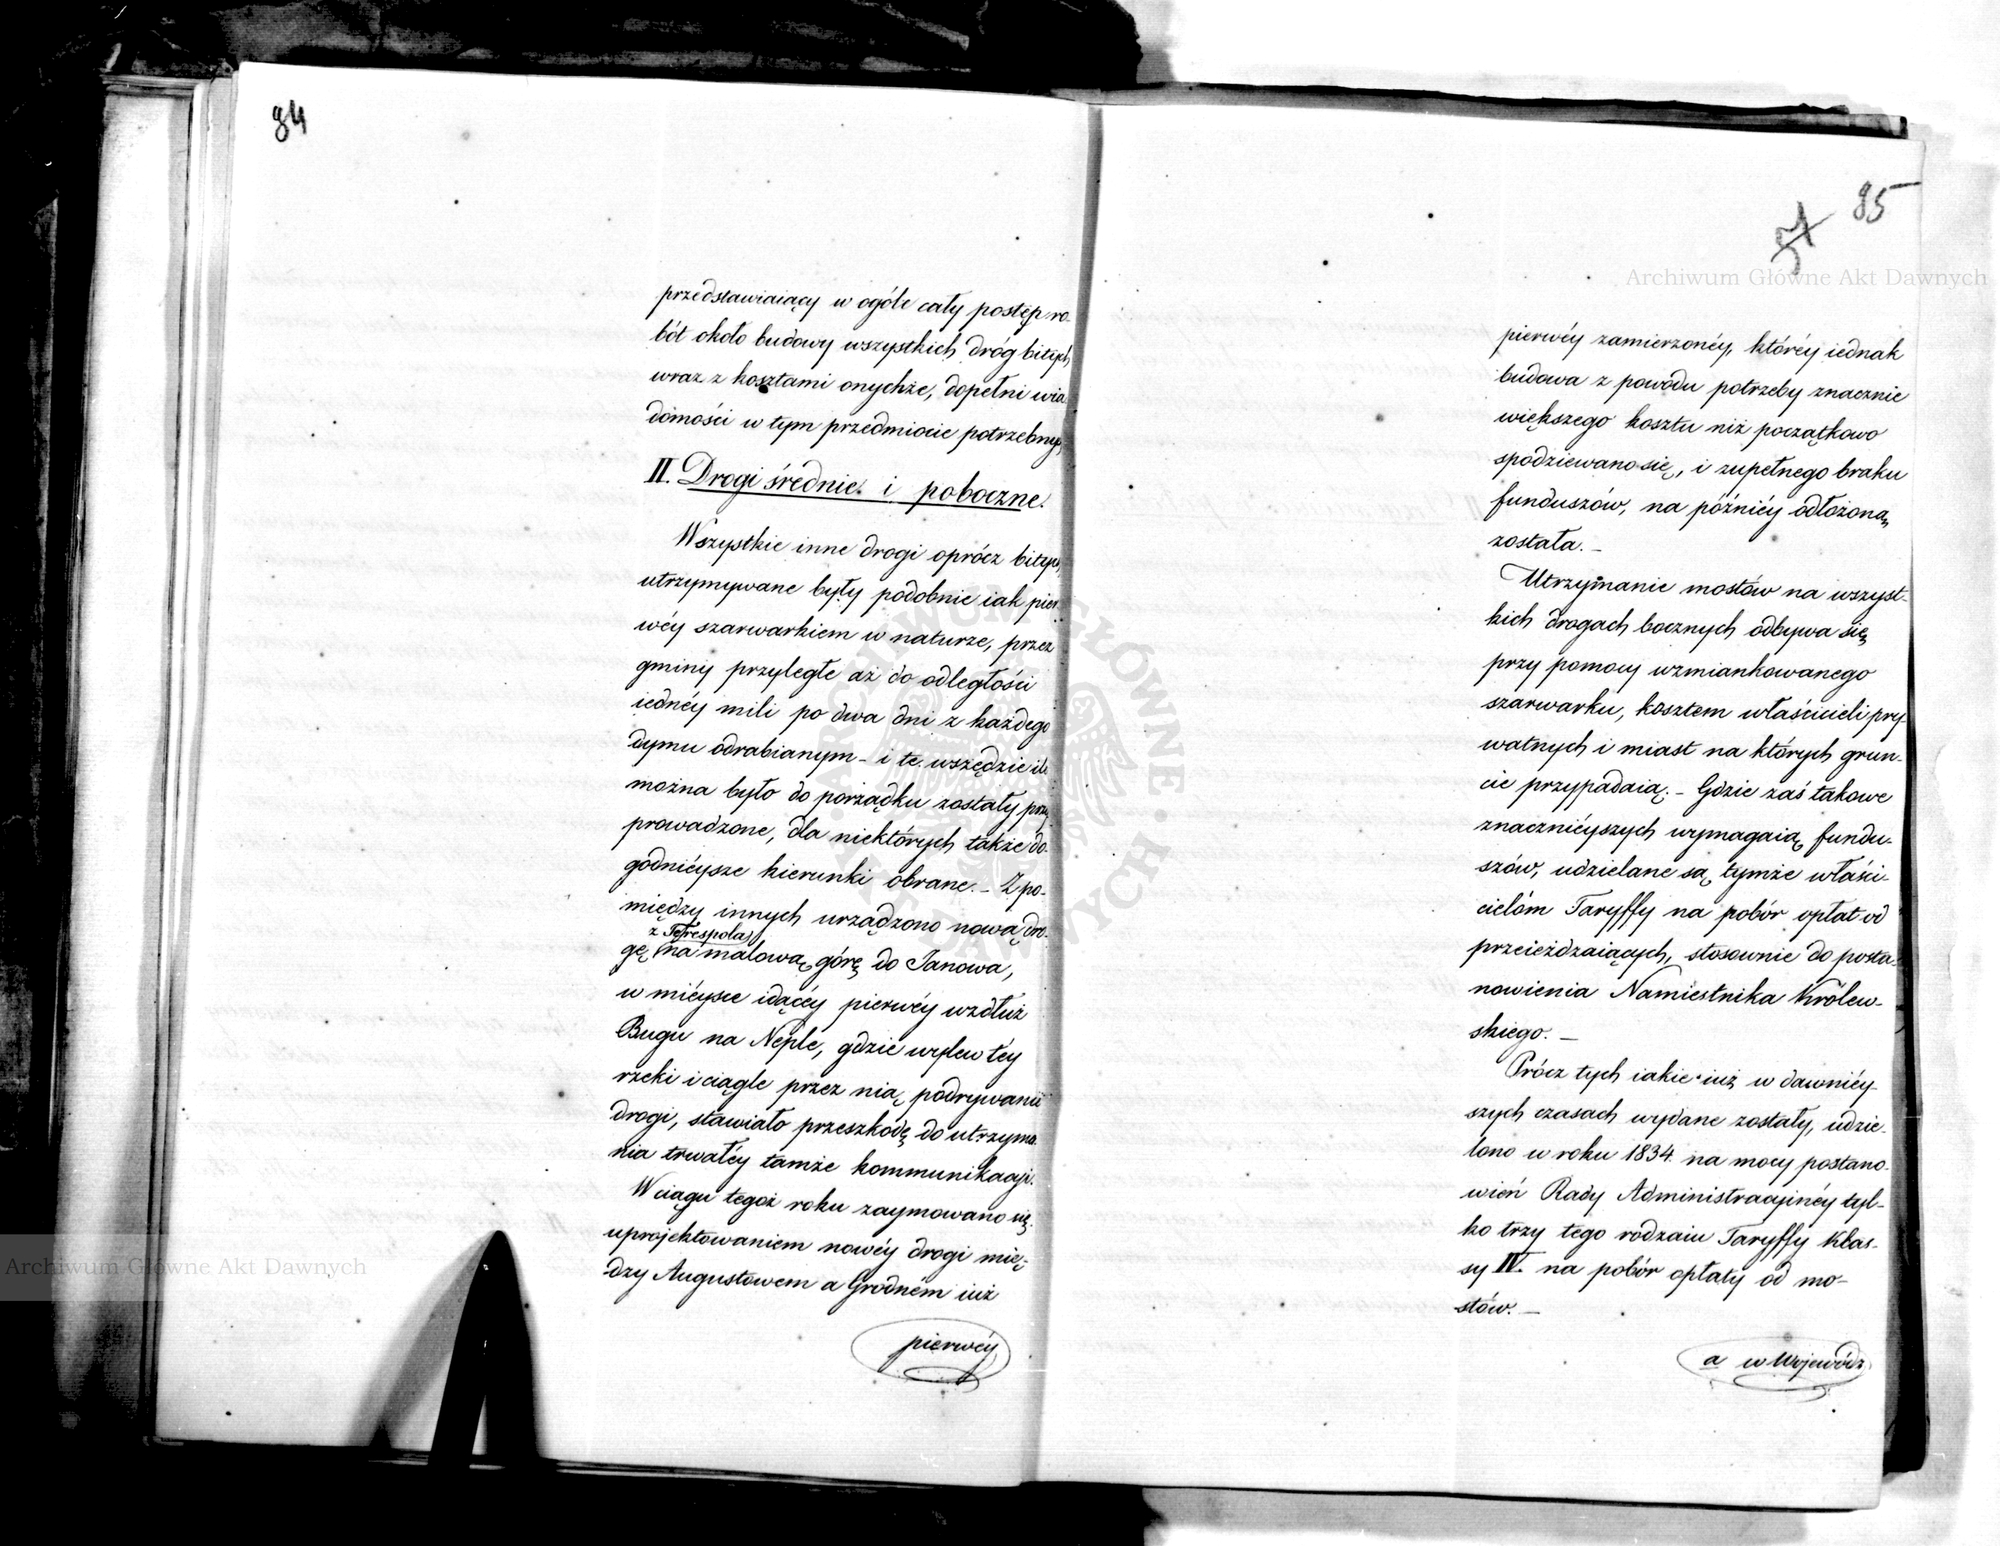 84
przedstawiaiący w ogóle cały postęp ro-
bót około budowy wszystkich dróg bitych,
wraz z kosztami onychże, dopełni wia
domości w tym przedmiocie potrzebnych,
II. Drogi średnie i poboczne.
Wszystkie inne drogi oprócz bitych,
utrzymywane były podobnie iak pier
wéy szarwarkiem w naturze, przez
gminy przyległe aż do odległości
iednéy mili po dwa dni z każdego
dymu odrabianym – i te wszędzie ile
można było do porządku zostały przy
prowadzone, dla niektórych także do-
godnieysze kierunki obrane. – Z po-
między innych urządzono nową dro-
z Terespola
gę na malową górę do Janowa,
w mieysce idącéy pierwéy wzdłuż
Bugu na Neple, gdzie wylew téy
rzeki i ciągłe przez nią podrywanie
drogi, stawiało przeszkodę do utrzyma
nia trwałéy tamże kommunikacyi.
W ciągu tegoż roku zaymowano się
uprojektowaniem nowéy drogi mię-
dzy Augustowem a Grodném iuż
pierwéy
85
57
Archiwum Główne Akt Dawnych
pierwéy zamierzonéy, któréy iednak
budowa z powodu potrzeby znacznie
większego kosztu niż początkowo
spodziewano się, i zupełnego braku
funduszów, na późniéy odłożoną
została. –
Utrzymanie mostów na wszyst-
kich drogach bocznych odbywa się
przy pomocy wzmiankowanego
szarwarku, kosztem właścicieli pry-
watnych i miast na których grun-
cie przypadaią. – Gdzie zaś takowe
znacznieyszych wymagaią fundu-
szów, udzielane są tymże właści-
cielóm Taryffy na pobór opłat od
przeieżdzaiących, stosownie do posta-
nowienia Namiestnika Królew-
skiego. –
Prócz tych iakie iuż w dawniéy-
szych czasach wydane zostały, udzie-
lono w roku 1834 na mocy postano-
wień Rady Administracyinéy tyl-
ko trzy tego rodzaiu Taryffy Klas-
sy IV. na pobór opłaty od mo-
stów. –
a w Wojewódz
Archiwum Główne Akt Dawnych
ARCHIWUM GŁÓWNE AKT DAWNYCH